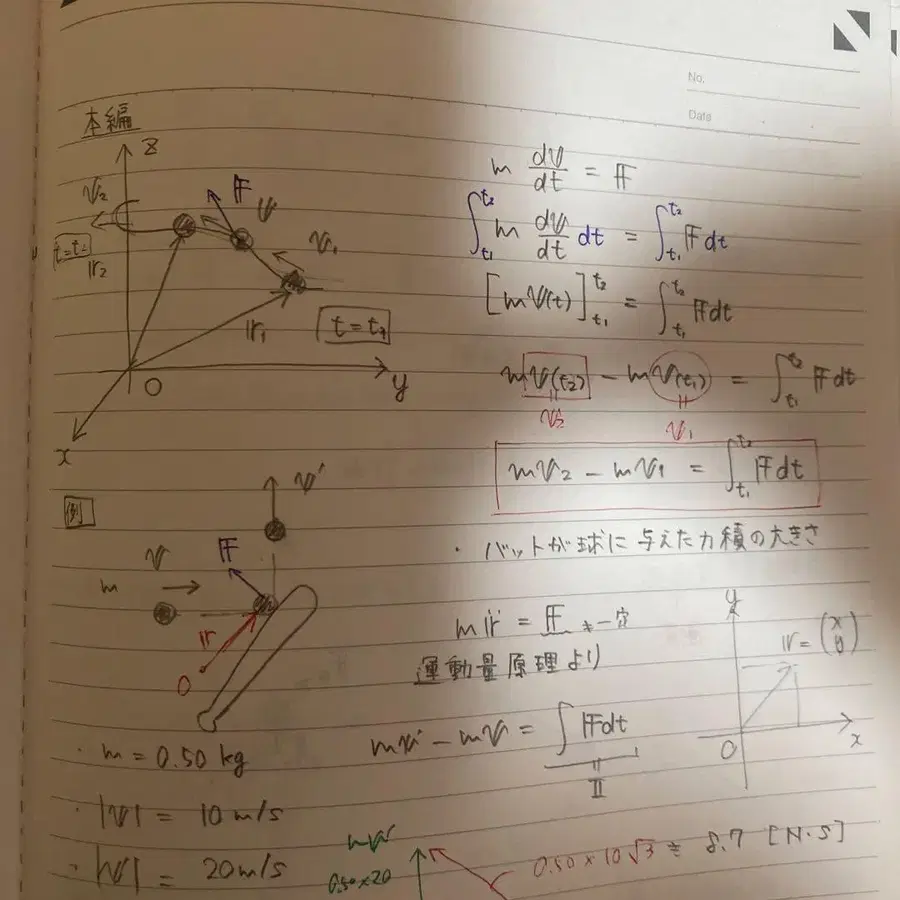 No.
Date
本編
z
𝕧₂
𝔽
𝕧
𝕧₁
t=t₂
𝕣₂
𝕣₁
t=t₁
O
y
x
m d𝕧/dt = 𝔽
∫_{t₁}^{t₂} m d𝕧/dt dt = ∫_{t₁}^{t₂} 𝔽dt
[m𝕧(t)]_{t₁}^{t₂} = ∫_{t₁}^{t₂} 𝔽dt
m𝕧(t₂) - m𝕧(t₁) = ∫_{t₁}^{t₂} 𝔽dt
𝕧₂ 𝕧₁
m𝕧₂ - m𝕧₁ = ∫_{t₁}^{t₂} 𝔽dt
例
𝕧'
𝔽
m 𝕧
𝕣
O
・バットが球に与えた力積の大きさ
m𝕣̈ = 𝔽 ≠一定
運動量原理より
m𝕧' - m𝕧 = ∫𝔽dt
𝕀
y
𝕣 = (x y)
O
x
・m = 0.50 kg
・|𝕧| = 10m/s
・|𝕧'| = 20m/s
m𝕧'
0.50×20
0.50×10√3 ≒ 8.7 [N・S]